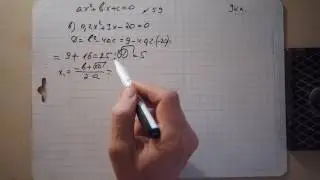 ax²+bx+c=0 №59
в) 0,2x²+3x-20=0
D=b²-4ac=9-4·0,2·(-20)=
=9+16=25; √D=5
x₁=(-b+√D)/2a=